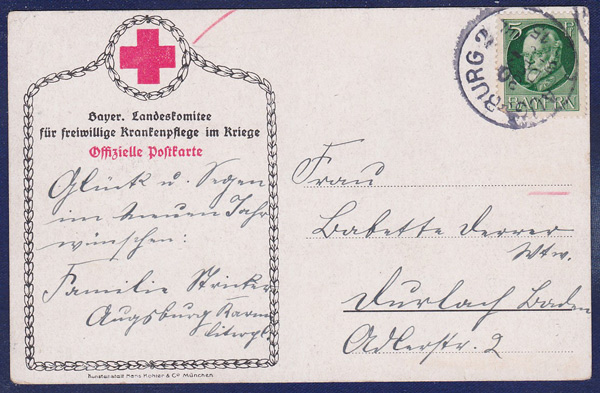 Bayer. Landeskomitee
für freiwillige Krankenpflege im Kriege
Offizielle Postkarte
Glück u. Segen
im neuen Jahr
wünschen:
Familie Stricker
Augsburg Karm
literpl.
Kunstanstalt Hans Köhler & Co München
BURG 2
5 Pf
BAYERN
Frau
Babette Derrer
Wtw.
Durlach Baden
Adlerstr. 2